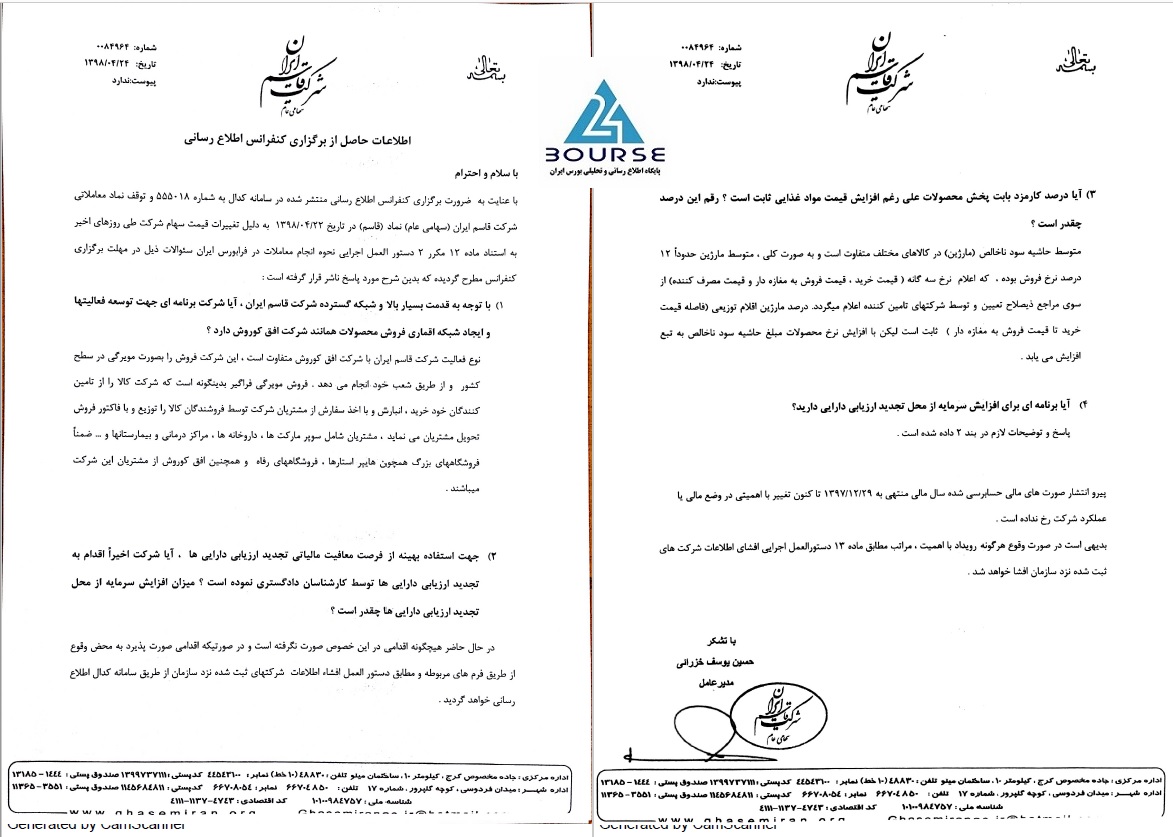 بسمه تعالی
شرکت قاسم ایران
سهامی عام
شماره: ۰۰۸۴۹۶۴
تاریخ: ۱۳۹۸/۰۴/۲۴
پیوست:ندارد
اطلاعات حاصل از برگزاری کنفرانس اطلاع رسانی
با سلام و احترام
با عنایت به ضرورت برگزاری کنفرانس اطلاع رسانی منتشر شده در سامانه کدال به شماره ۵۵۵۰۱۸ و توقف نماد معاملاتی
شرکت قاسم ایران (سهامی عام) نماد (قاسم) در تاریخ ۱۳۹۸/۰۴/۲۲ به دلیل تغییرات قیمت سهام شرکت طی روزهای اخیر
به استناد ماده ۱۲ مکرر ۲ دستور العمل اجرایی نحوه انجام معاملات در فرابورس ایران سئوالات ذیل در مهلت برگزاری
کنفرانس مطرح گردیده که بدین شرح مورد پاسخ ناشر قرار گرفته است :
۱) با توجه به قدمت بسیار بالا و شبکه گسترده شرکت قاسم ایران ، آیا شرکت برنامه ای جهت توسعه فعالیتها
و ایجاد شبکه اقماری فروش محصولات همانند شرکت افق کوروش دارد ؟
نوع فعالیت شرکت قاسم ایران با شرکت افق کوروش متفاوت است ، این شرکت فروش را بصورت مویرگی در سطح
کشور و از طریق شعب خود انجام می دهد . فروش مویرگی فراگیر بدینگونه است که شرکت کالا را از تامین
کنندگان خود خرید ، انبارش و با اخذ سفارش از مشتریان شرکت توسط فروشندگان کالا را توزیع و با فاکتور فروش
تحویل مشتریان می نماید ، مشتریان شامل سوپر مارکت ها ، داروخانه ها ، مراکز درمانی و بیمارستانها و ... ضمناً
فروشگاههای بزرگ همچون هایپر استارها ، فروشگاههای رفاه و همچنین افق کوروش از مشتریان این شرکت
میباشند .
۲) جهت استفاده بهینه از فرصت معافیت مالیاتی تجدید ارزیابی دارایی ها ، آیا شرکت اخیراً اقدام به
تجدید ارزیابی دارایی ها توسط کارشناسان دادگستری نموده است ؟ میزان افزایش سرمایه از محل
تجدید ارزیابی دارایی ها چقدر است ؟
در حال حاضر هیچگونه اقدامی در این خصوص صورت نگرفته است و در صورتیکه اقدامی صورت پذیرد به محض وقوع
از طریق فرم های مربوطه و مطابق دستور العمل افشاء اطلاعات شرکتهای ثبت شده نزد سازمان از طریق سامانه کدال اطلاع
رسانی خواهد گردید .
اداره مرکزی : جاده مخصوص کرج ، کیلومتر ۱۰ ، ساختمان مینو تلفن : ۴۸۸۳۰ (۱۰ خط) نمابر : ۴۴۵۴۳۱۰۰ کدپستی : ۱۳۹۹۷۳۷۱۱۱ صندوق پستی : ۱۴۴۴ - ۱۳۱۸۵
اداره شهر : میدان فردوسی ، کوچه گلپرور ، شماره ۱۷ تلفن : ۶۶۷۰۴۸۵۰ نمابر : ۶۶۷۰۸۰۵۴ کدپستی : ۱۱۴۵۶۸۴۸۱۱ صندوق پستی : ۳۵۵۱ - ۱۱۳۶۵
شناسه ملی : ۱۰۱۰۰۹۸۴۷۵۷ کد اقتصادی : ۴۷۴۳-۱۱۳۷-۴۱۱۱
www.ghasemiran.org
Generated by CamScanner
24
BOURSE
پایگاه اطلاع رسانی و تحلیلی بورس ایران
بسمه تعالی
شرکت قاسم ایران
سهامی عام
شماره: ۰۰۸۴۹۶۴
تاریخ: ۱۳۹۸/۰۴/۲۴
پیوست:ندارد
۳) آیا درصد کارمزد بابت پخش محصولات علی رغم افزایش قیمت مواد غذایی ثابت است ؟ رقم این درصد
چقدر است ؟
متوسط حاشیه سود ناخالص (مارژین) در کالاهای مختلف متفاوت است و به صورت کلی ، متوسط مارژین حدوداً ۱۲
درصد نرخ فروش بوده ، که اعلام نرخ سه گانه ( قیمت خرید ، قیمت فروش به مغازه دار و قیمت مصرف کننده) از
سوی مراجع ذیصلاح تعیین و توسط شرکتهای تامین کننده اعلام میگردد. درصد مارژین اقلام توزیعی (فاصله قیمت
خرید تا قیمت فروش به مغازه دار ) ثابت است لیکن با افزایش نرخ محصولات مبلغ حاشیه سود ناخالص به تبع
افزایش می یابد .
۴) آیا برنامه ای برای افزایش سرمایه از محل تجدید ارزیابی دارایی دارید؟
پاسخ و توضیحات لازم در بند ۲ داده شده است .
پیرو انتشار صورت های مالی حسابرسی شده سال مالی منتهی به ۱۳۹۷/۱۲/۲۹ تا کنون تغییر با اهمیتی در وضع مالی یا
عملکرد شرکت رخ نداده است .
بدیهی است در صورت وقوع هرگونه رویداد با اهمیت ، مراتب مطابق ماده ۱۳ دستورالعمل اجرایی افشای اطلاعات شرکت های
ثبت شده نزد سازمان افشا خواهد شد .
با تشکر
حسین یوسف خزرائی
مدیرعامل
شرکت قاسم ایران
سهامی عام
اداره مرکزی : جاده مخصوص کرج ، کیلومتر ۱۰ ، ساختمان مینو تلفن : ۴۸۸۳۰ (۱۰ خط) نمابر : ۴۴۵۴۳۱۰۰ کدپستی : ۱۳۹۹۷۳۷۱۱۱ صندوق پستی : ۱۴۴۴ - ۱۳۱۸۵
اداره شهر : میدان فردوسی ، کوچه گلپرور ، شماره ۱۷ تلفن : ۶۶۷۰۴۸۵۰ نمابر : ۶۶۷۰۸۰۵۴ کدپستی : ۱۱۴۵۶۸۴۸۱۱ صندوق پستی : ۳۵۵۱ - ۱۱۳۶۵
شناسه ملی : ۱۰۱۰۰۹۸۴۷۵۷ کد اقتصادی : ۴۷۴۳-۱۱۳۷-۴۱۱۱
www.ghasemiran.org
Generated by CamScanner